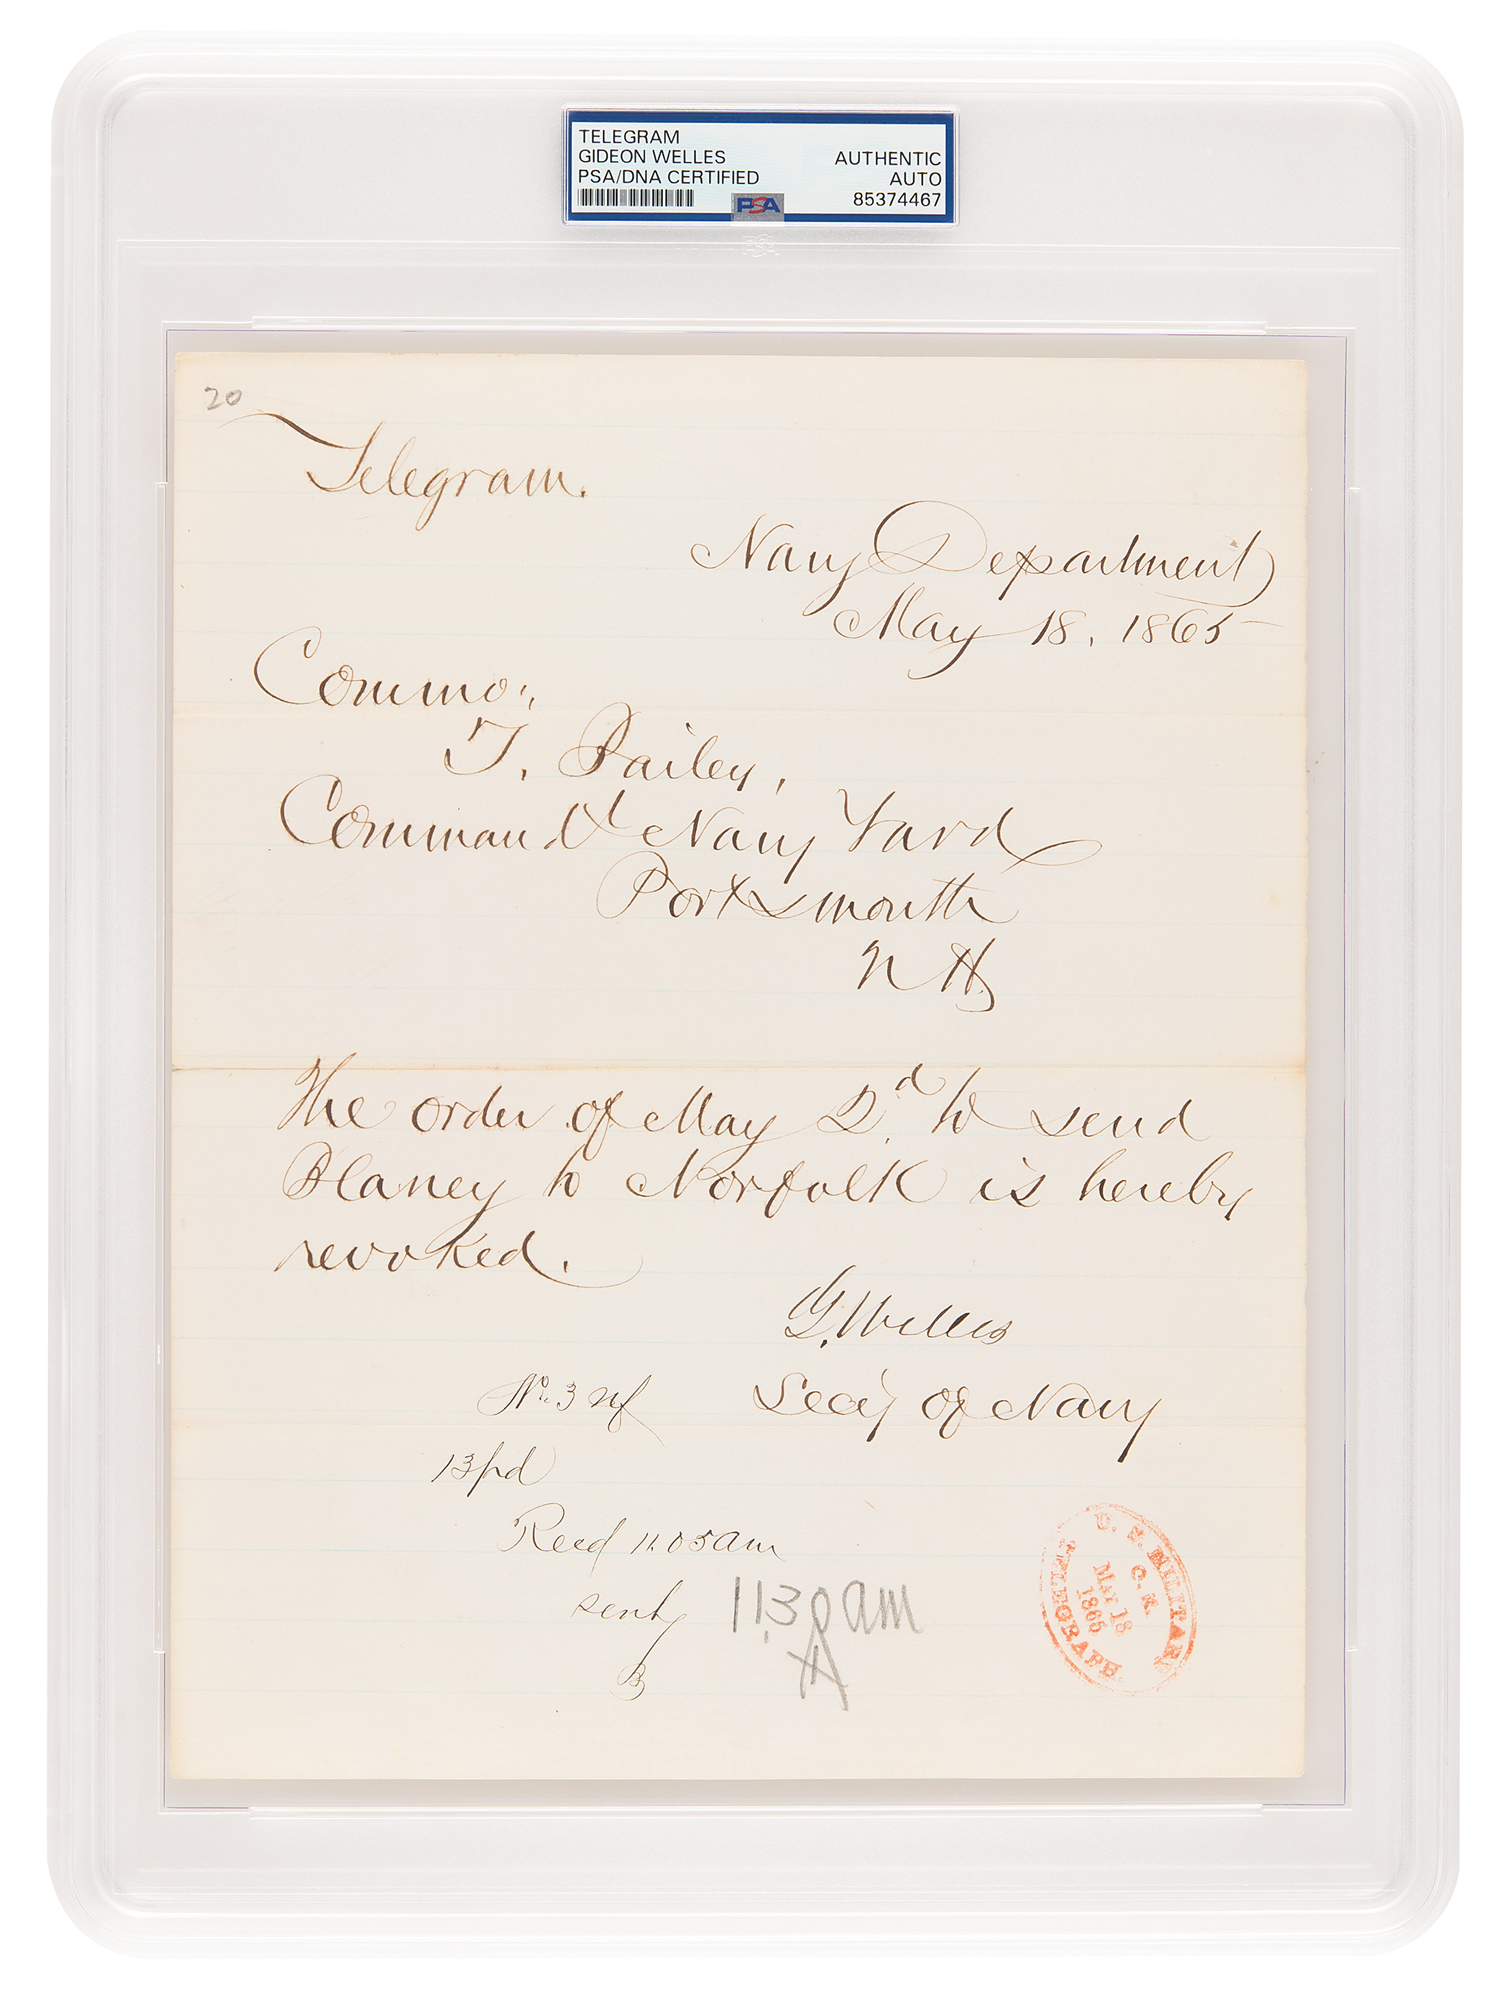 TELEGRAM
GIDEON WELLES
PSA/DNA CERTIFIED
AUTHENTIC
AUTO
85374467
PSA
20
Telegram.
Navy Department
May 18, 1865
Commo:,
T. Bailey,
Commandt Navy Yard
Portsmouth
N H.
The order of May 2d. to send
Blaney to Norfolk is hereby
revoked.
G. Welles
Secy of Navy
No. 3
13 pd
Recd 11.05 am
sent 11.30 am
B
U. S. MILITARY
O. K.
MAY 18
1865
TELEGRAPH.